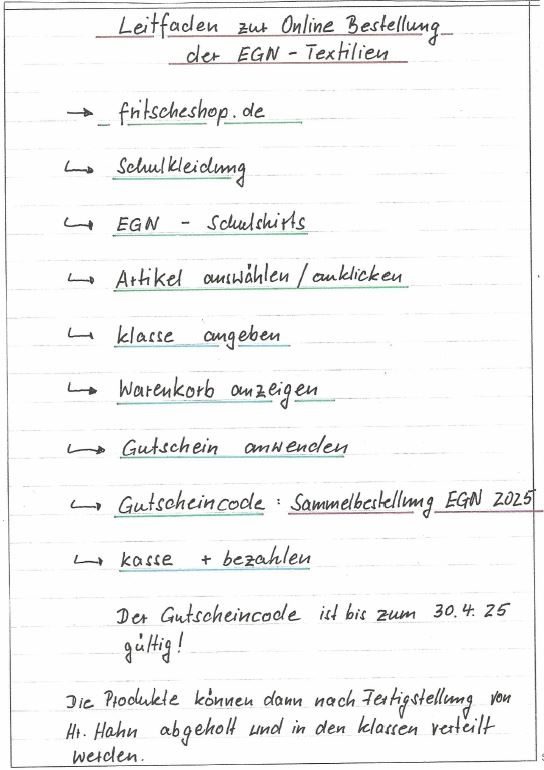 Leitfaden zur Online Bestellung
der EGN - Textilien
→ fritscheshop.de
↳ Schulkleidung
↳ EGN - Schulshirts
↳ Artikel auswählen / anklicken
↳ Klasse angeben
↳ Warenkorb anzeigen
↳ Gutschein anwenden
↳ Gutscheincode : Sammelbestellung EGN 2025
↳ Kasse + bezahlen
Der Gutscheincode ist bis zum 30.4.25
gültig!
Die Produkte können dann nach Fertigstellung von
Hr. Hahn abgeholt und in den Klassen verteilt
werden.